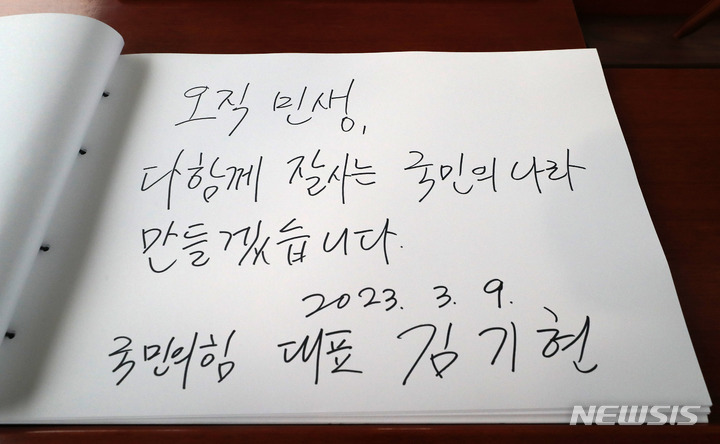 오직 민생,
다함께 잘사는 국민의 나라
만들겠습니다.
2023. 3. 9.
국민의힘 대표 김기현
NEWSIS